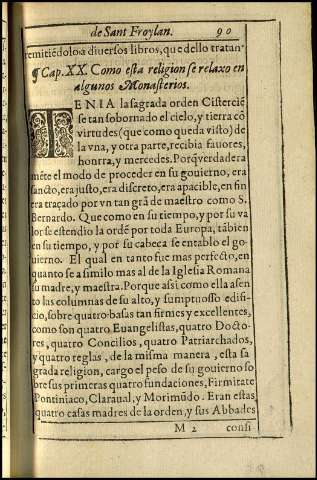 de Sant Froylan. 90
remitiēdolo a diuersos libros, que dello tratan.
¶ Cap. XX. Como esta religion se relaxo en
algunos Monasterios.
TENIA la sagrada orden Cisterciē
se tan sobornado el cielo, y tierra cõ
virtudes (que como queda visto) de
la vna, y otra parte, recibia fauores,
honrra, y mercedes. Porq̃ verdadera
mēte el modo de proceder en su gouierno, era
sancto, era justo, era discreto, era apacible, en fin
era traçado por vn tan grã de maestro como S.
Bernardo. Que como en su tiempo, y por su va
lor se estendio la ordē por toda Europa, tãbien
en su tiempo, y por su cabeca se entablo el go-
uierno. El qual en tanto fue mas perfecto, en
quanto se asimilo mas al de la Iglesia Romana
su madre, y maestra. Porque assi como ella asen
to las columnas de su alto, y sumptuosso edifi-
cio, sobre quatro basas tan firmes y excellentes,
como son quatro Euangelistas, quatro Docto-
res, quatro Concilios, quatro Patriarchados,
y quatro reglas, de la misma manera, esta sa
grada religion, cargo el peso de su gouierno so
bre sus primeras quatro fundaciones, Firmitate
Pontiniaco, Claraual, y Morimũdo. Eran estas
quatro casas madres de la orden, y sus Abbades
M 2 consi